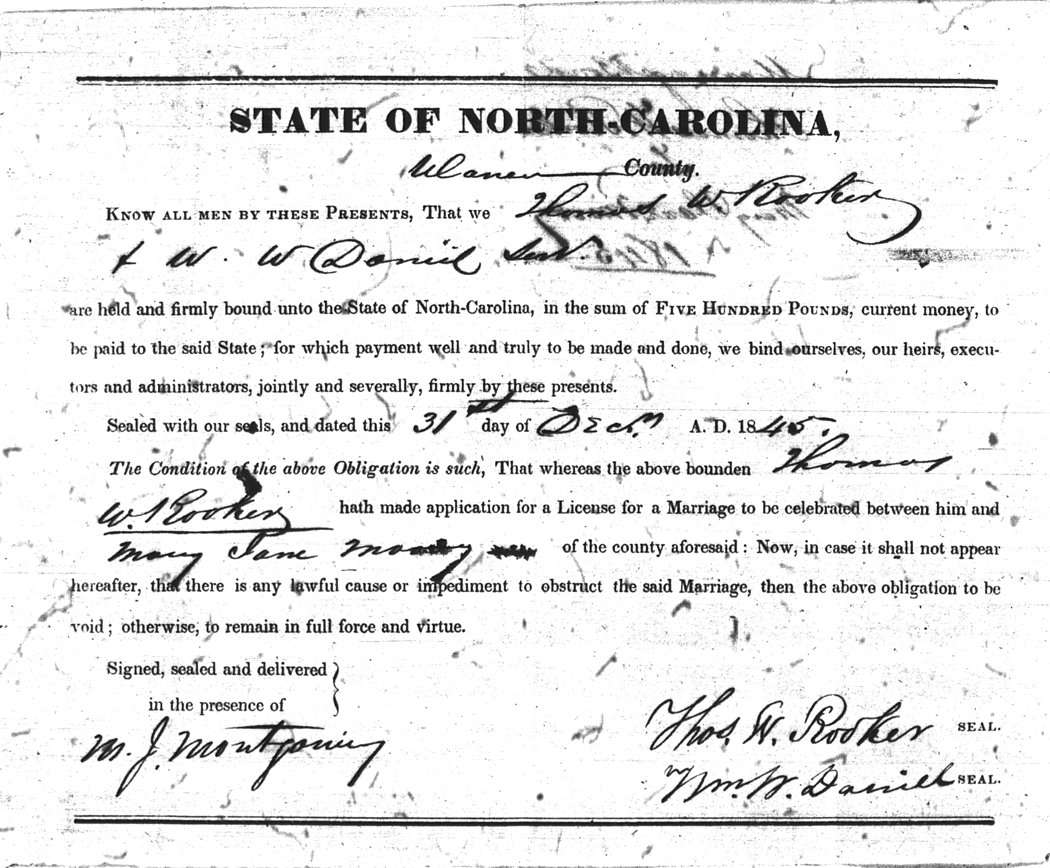 STATE OF NORTH-CAROLINA,
Warren County.
KNOW ALL MEN BY THESE PRESENTS, That we Thomas W. Rooker
& W. W Daniel
are held and firmly bound unto the State of North-Carolina, in the sum of FIVE HUNDRED POUNDS, current money, to
be paid to the said State; for which payment well and truly to be made and done, we bind ourselves, our heirs, execu-
tors and administrators, jointly and severally, firmly by these presents.
Sealed with our seals, and dated this 31st day of Decr A. D. 1845.
The Condition of the above Obligation is such, That whereas the above bounden Thomas
W. Rooker hath made application for a License for a Marriage to be celebrated between him and
Mary Jane of the county aforesaid: Now, in case it shall not appear
hereafter, that there is any lawful cause or impediment to obstruct the said Marriage, then the above obligation to be
void; otherwise, to remain in full force and virtue.
Signed, sealed and delivered
in the presence of
M. J. Montgomery
Thos. W. Rooker SEAL.
Wm. W. Daniel SEAL.